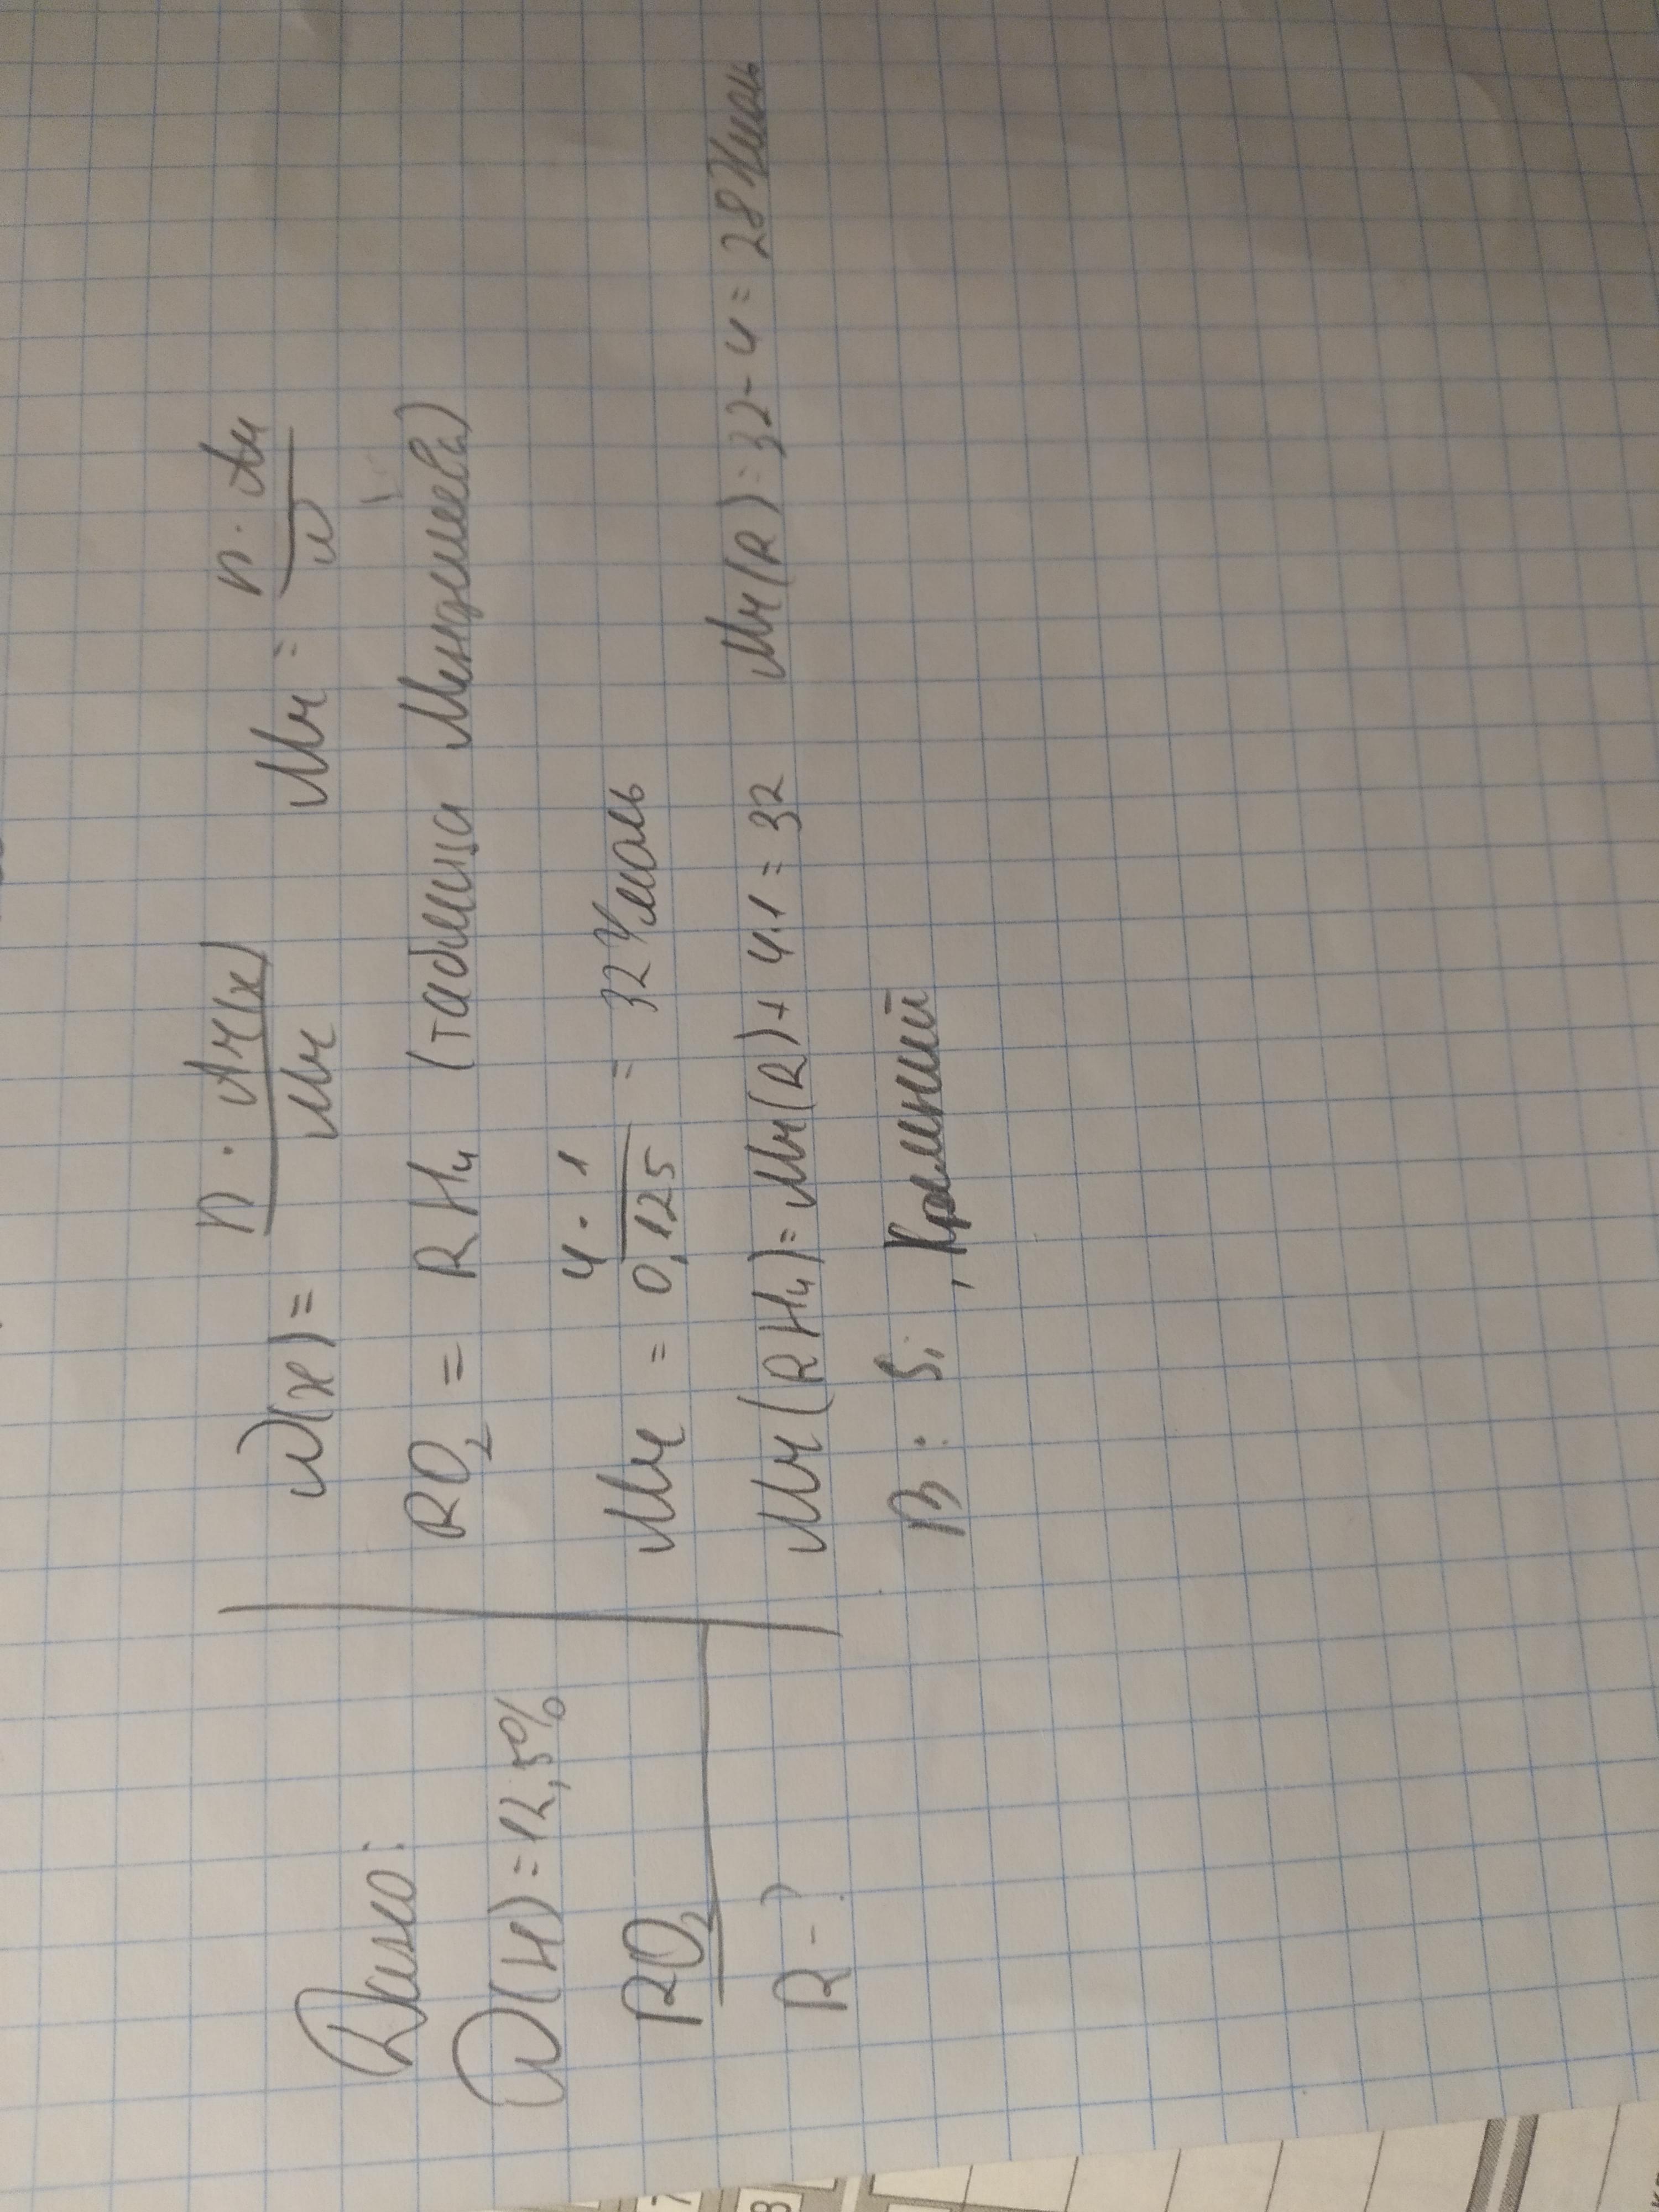 Дано:
W(H) = 12,5%
RO₂
R - ?
W(x) = n · Ar(x) / Mr Mr = n · Ar / w
RO₂ = RH₄ (таблица Менделеева)
Mr = 4 · 1 / 0,125 = 32 г/моль
Mr(RH₄) = Mr(R) + 4·1 = 32 Mr(R) = 32 - 4 = 28 г/моль
В: Si, Кремний
7
8